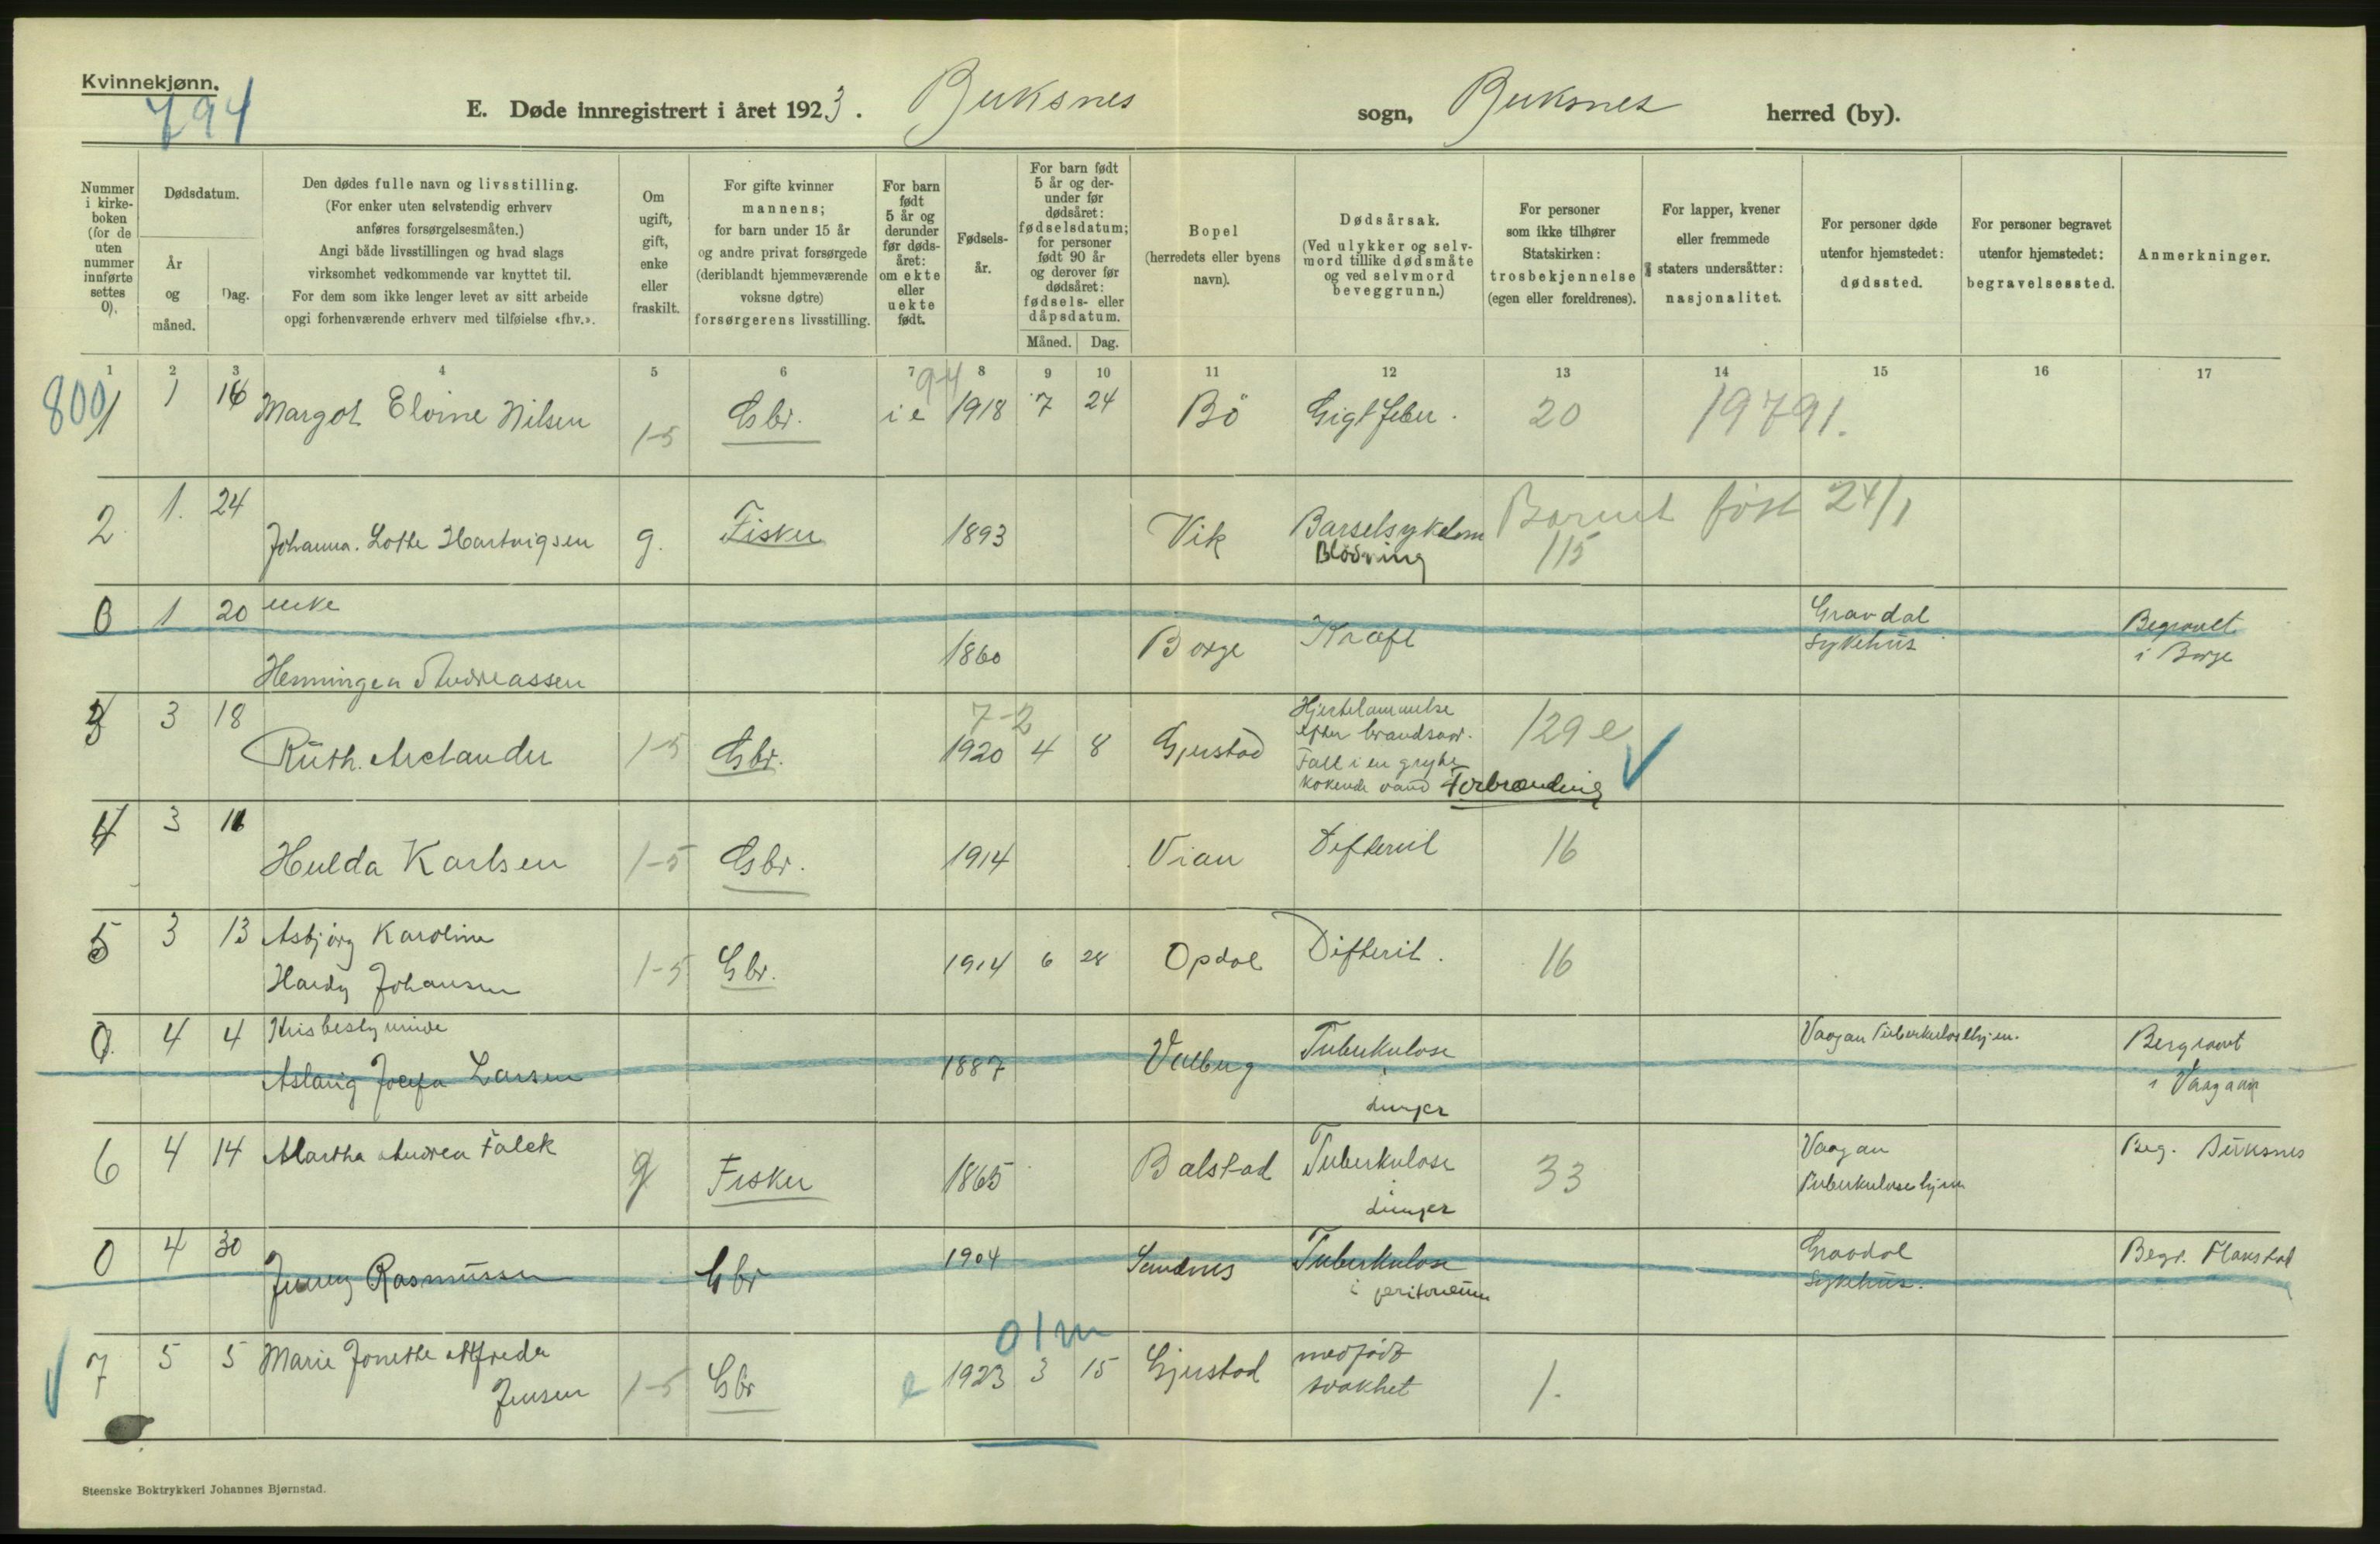 Kvinnekjønn.
794
E. Døde innregistrert i året 1923. Buksnes sogn, Buksnes herred (by).
Nummer i kirkeboken (for de uten nummer innførte settes 0).
Dødsdatum.
År og måned.
Dag.
Den dødes fulle navn og livsstilling.
(For enker uten selvstendig erhverv
anføres forsørgelsesmåten.)
Angi både livsstillingen og hvad slags
virksomhet vedkommende var knyttet til.
For dem som ikke lenger levet av sitt arbeide
opgi forhenværende erhverv med tilføielse «fhv.».
Om ugift, gift, enke eller fraskilt.
For gifte kvinner
mannens;
for barn under 15 år
og andre privat forsørgede
(deriblandt hjemmeværende
voksne døtre)
forsørgerens livsstilling.
For barn født 5 år og derunder før dødsåret: om ekte eller uekte født.
Fødselsår.
For barn født 5 år og derunder før dødsåret: fødselsdatum; for personer født 90 år og derover før dødsåret: fødsels- eller dåpsdatum.
Måned. Dag.
Bopel
(herredets eller byens
navn).
Dødsårsak.
(Ved ulykker og selvmord tillike dødsmåte og ved selvmord beveggrunn.)
For personer
som ikke tilhører
Statskirken:
trosbekjennelse
(egen eller foreldrenes).
For lapper, kvener
eller fremmede
staters undersåtter:
nasjonalitet.
For personer døde
utenfor hjemstedet:
dødssted.
For personer begravet
utenfor hjemstedet:
begravelsessted.
Anmerkninger.
1 2 3 4 5 6 7 8 9 10 11 12 13 14 15 16 17
800 94
1 1 16 Margot Elvine Nilsen 1-5 Gbr. i e 1918 7 24 Bö Gigtfeber. 20 19791.
2 1. 24 Johanna. Lotte Hartvigsen g. Fisker 1893 Vik Barselsykdom Barnet født 24/1
Blödning 115
0 1 20 enke
Henningea Andreassen 1860 Borge Kræft Gravdal sykehus Begravet i Borge
3 3 18 Ruth. Arctander 1-5 Gbr. 7-2 1920 4 8 Gjerstad Hjertelammelse
efter brandsaar.
Fall i en gryte
kokende vand Forbrænding 129 e
4 3 11 Hulda Karlsen 1-5 Gbr. 1914 Vian Difterit 16
5 3 13 Asbjörg Karoline
Hardy Johansen 1-5 Gbr. 1914 6 28 Opdal Difterit. 16
0. 4 4 Husbestyrinde
Aslaug Josefa Larsen 1887 Valberg Tuberkulose
i
Lunger Vaagan Tuberkulosehjem. Bergravet
i Vaagan
6 4 14 Martha Andrea Falck g Fisker 1865 Balstad Tuberkulose
i
Lunger 33 Vaagan
Tuberkulosehjem Beg. Buksnes
0 4 30 Jenny Rasmussen Gbr 1904 Sandnes Tuberkulose
i peritoneum Gravdal
sykehus. Begr. Flakstad
7 5 5 Marie Jonette Alfreda
Jensen 1-5 Gbr e 01m 1923 3 15 Gjerstad medfödt
svakhet 1.
Steenske Boktrykkeri Johannes Bjørnstad.